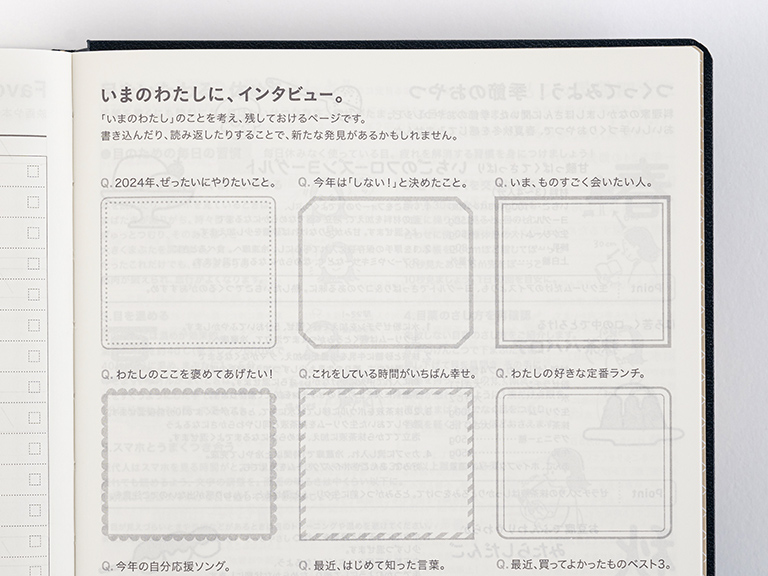 いまのわたしに、インタビュー。
「いまのわたし」のことを考え、残しておけるページです。
書き込んだり、読み返したりすることで、新たな発見があるかもしれません。
Q. 2024年、ぜったいにやりたいこと。
Q. 今年は「しない！」と決めたこと。
Q. いま、ものすごく会いたい人。
Q. わたしのここを褒めてあげたい！
Q. これをしている時間がいちばん幸せ。
Q. わたしの好きな定番ランチ。
Q. 今年の自分応援ソング。
Q. 最近、はじめて知った言葉。
Q. 最近、買ってよかったものベスト3。